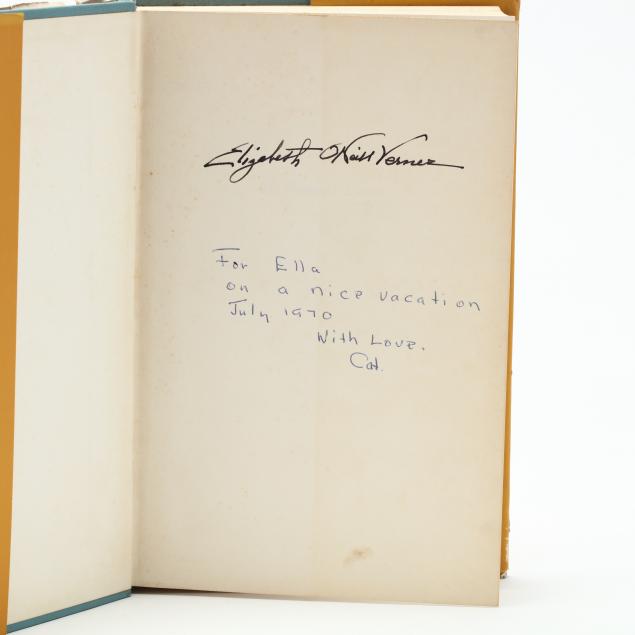 Elizabeth O'Neill Verner
For Ella
on a nice vacation
July 1970
With Love.
Cat.